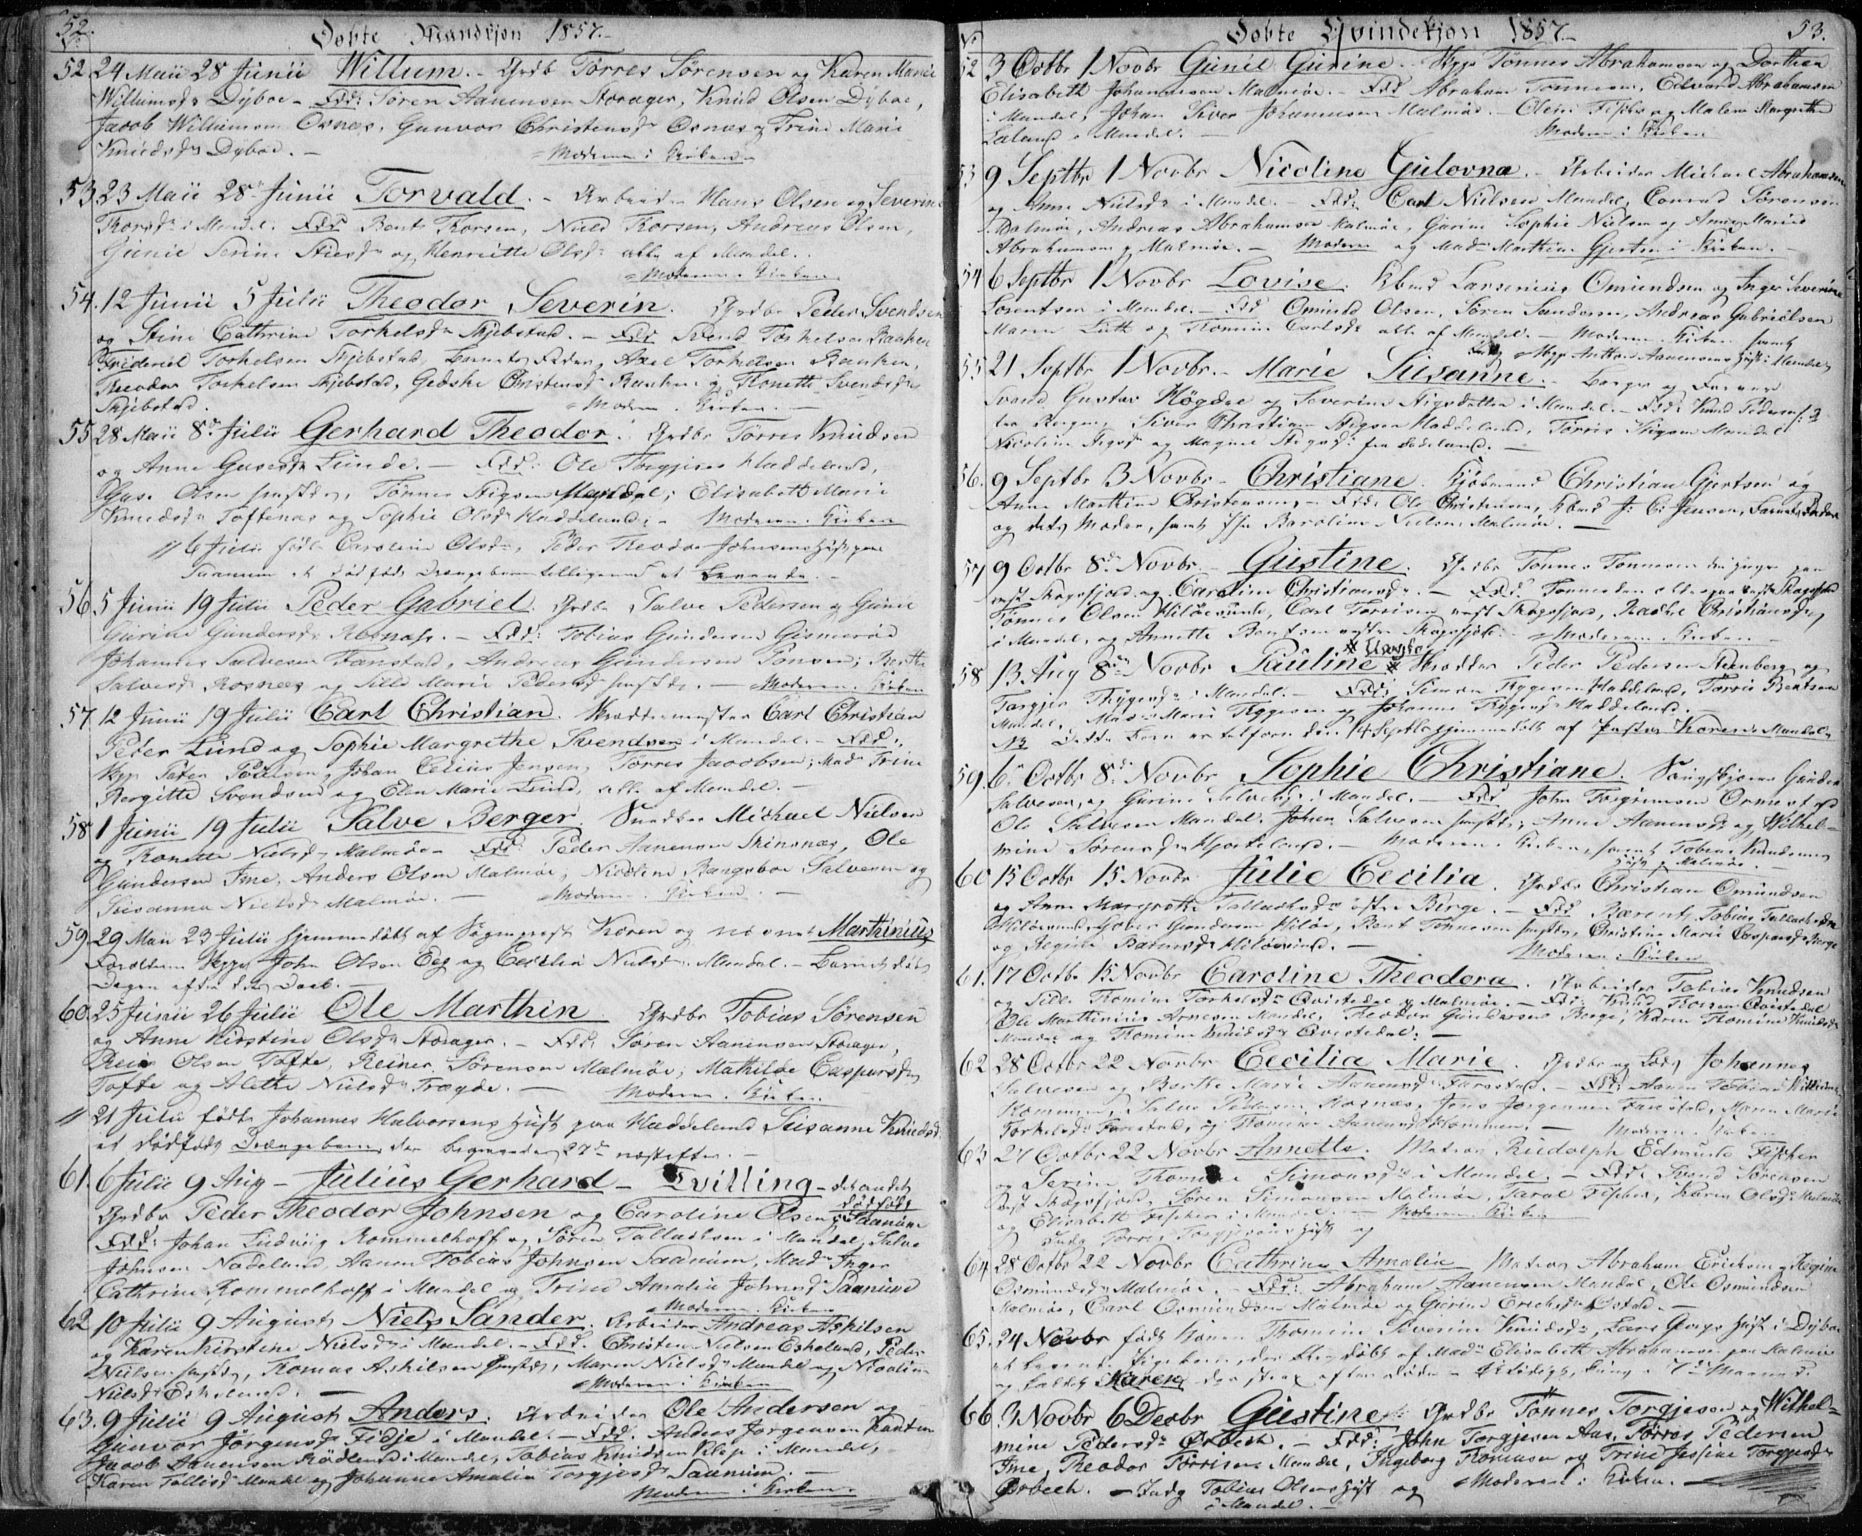 52.
Døbte Mandkjøn 1857.
52. 24 Maii 28 Junii Willum. - Grdbr Tørres Sørensen og Karen Marie
Willumsdr Dyboe - Fdd: Søren Aanensen Storager, Knud Olsen Dyboe,
Jacob Willumsen Osnes, Gunvor Christensdr Osnes og Trine Marie
Knudsdr Dyboe. - Moderen i Kirken
53. 23 Maii 28 Junii Torvald. - Arbeider Hans Olsen og Severine
Thorsdr i Mandal. Fdd Bent Thorsen, Nils Thorsen, Andreas Olsen,
Gunie Serine og Henriette Olsdr alle af Mandal.
Moderen i Kirken
54. 12 Junii 5 Julii Theodor Severin. Grdbr Peder Svendsen
og Stine Cathrine Torkelsdr Skjebstad. - Fdd Svend Torkelsen Banken
Friderik Torkelsen Skjebstad, Barnets Fader, Axel Torkelsen Banken,
Theodor Torkelsen Skjebstad, Gedske Christensdr Banken og Svendsdr
Skjebstad. Moderen i Kirken
55. 28 Maii 8de Julii Gerhard Theodor. Grdbr Tørres Knudsen
og Anne Gusesdr Lunde. - Fdd: Ole Torgjersen Haddeland,
Guse Olsen sammestds, Tønnes Stigsen Mandal, Elisabeth Marie
Knudsdr Toftenes og Sophie Olsdr Haddeland. - Moderen i Kirken
// 6 Julii fødte Caroline Olsdr, Peder Theodor Johnsens Hust. paa
Saanum et dødfødt Drengebarn tilligemed et levende.
56. 5 Junii 19 Julii Peder Gabriel. Grdbr Salve Pedersen og Gunil
Gurine Gundersdr Rosnæs. - Fdd: Tobias Gundersen Gismerød
Johannes Salvesen Farestad, Andreas Gundersen Ponsen; Berthe
Salvesdr Rosnæs og Sille Marie Pedersdr sammestds. - Moderen i Kirken
57. 12 Junii 19 Julii Carl Christian. Carl Christian
Peter Lund og Sophie Margrethe Svendsen i Mandal. - Fdd:
Skpr Peter Poulsen, Johan Celius Jensen, Tørres Jacobsen; Mad. Trine
Bergitte Svendsen og Elen Marie Lund, alle af Mandal. -
58. 1 Junii 19 Julii Salve Berger. Michael Nielsen
og Tronette Nielsdr Malmøe - Fdd: Peder Aanensen Skinsnæs, Ole
Gundersen Ime, Anders Olsen Malmøe, Nicoline Bangsboe Salvesen og
Susanna Nielsdr Malmøe. - Moderen i Kirken
59. 29 Maii 23 Julii hjemmedøbt af Sogneprest Koren og nævnt Marthinius
Forældrene Skpr John Olsen Eeg og Cecilie Nielsdr Mandal. - Barnet døde
Dagen efter dets Daab. -
60. 25 Junii 26 Julii Ole Marthin. Grdbr Tobias Sørensen
og Anne Kirstine Olsdr Storager. - Fdd: Søren Aanensen Storager,
Reier Olsen Tofte, Reiner Sørensen Malmøe; Mathilde Caspersdr
Tofte og Alethe Nielsdr Trægde. - Moderen i Kirken
// 21 Julii fødte Johannes Halvorsens Hust. paa Haddeland Susanne Knudsdr
et dødfødt Drengebarn, der begravedes 27de næstefter. -
61. 6 Julii 9 Aug - Julius Gerhard - Tvilling - det andet
dødfødt
Grdbr Peder Theodor Johnsen og Caroline Olsen Saanum
Fdd: Johan Ludvig Rommelhoff og Søren Tallaksen i Mandal, Salve
Johnsen Nodeland, Aanen Tobias Johnsen Saanum, Mad. Inger
Cathrine Rommelhoff i Mandal og Trine Amalie Johnsdr Saanum
Moderen i Kirken
62. 10 Julii 9 August Niels Sander. Arbeider Andreas Askilsen
og Karen Kirstine Nielsdr i Mandal. - Fdd. Christen Nielsen Eskeland, Peder
Nielsen sammestds, Tomas Askilsen sammestds, Maren Nielsdr Mandal og Nicoline
Nielsdr Eskeland. - Moderen i Kirken
63. 9 Julii 9 August Anders. Arbeider Ole Andersen og
Gunvor Jørgensdr Fidje i Mandal. - Fdd. Anders Jørgensen
Jacob Aanensen Rødland i Mandal, Tobias Knudsen Kilen i Mandal,
Karen Tallaksdr Mandal og Johanne Amalia Torgjesdr Saanum. -
Moderen i Kirken.
53.
Døbte Qvindekjøn 1857.
52 3 Octbr 1 Novbr Gunil Gurine. Skpr Tønnes Abrahamsen og Dorthea
Elisabeth Johannesen Malmøe. - Fdd Abraham Tønnesen, Edvard Abrahamsen
i Mandal, Johan Siver Johannesen Malmøe. - Oline Fischer og Malene Margrethe
Mandal. - Moderen i Kirken
53 9 Septbr 1 Novbr Nicoline Gulovna. - Arbeider Michael Abrahamsen
og Anne Nielsdr i Mandal. - Fdd: Carl Nielsen Mandal, Conrad Sørensen
Malmøe, Andreas Abrahamsen Malmøe, Gurine Sophie Nielsen og Anne Marie
Abrahamsen Malmøe. - Moderen og Mad. Marthine Gjertsen i Kirken. -
54 6 Septbr 1 Novbr Lovise. Kbmd Larsenius Omundsen og Inger Severine
Lorentsen i Mandal. - Fdd Omund Olsen, Søren Sandersen, Andreas Gabrielsen
Maren og Tomine Carlsdr alle af Mandal. - Moderen i Kirken samt
Skpr Anthon Aanensens Hust. i Mandal
55 21 Septbr 1 Novbr. - Marie Susanne. - Borger og Farver
Svend Gustav Högdal og Severine Stigsdatter i Mandal. - Fdd: Knud Pedersen
Siver Christian Stigsen Haddeland, Tørris Stigsen Mandal
Nicoline Stigsdr og Magine Stigsdr fra Haddeland. -
56. 9 Septbr 3 Novbr - Christiane. Kjøbmand Christian Gjertsen og
Anne Marthine Christensen. - Fdd: Ole Christensen, Kbmd J. C. Jensen, Barnets Fader
og dets Moder, samt Karoline Nielsen Malmøe. -
57 9 Octbr 8de Novbr. - Gustine. Grdbr Tønnes Tønnesen den yngre paa
vestre Skogsfjord og Caroline Christiansdr. - Fdd: Tønnes den ældre paa vestre Skogsfjord
Tønnes Olsen Hiløesund, Carl Tørrisen vestre Skogsfjord, Rachel Christiansdr
i Mandal, og Annette Bentsen vestre Skogsfjord. - Moderen i Kirken -
58 13 Aug 8de Novbr Pauline * * Uægte. Fædder Peder Pedersen Steenberg og
Torgjer Thygesdr i Mandal. - Fdd: Simon Thygesen Haddeland, Tørris Bentsen
Mandal, Marie Thygesen og Johanne Thygesdr Haddeland. -
NB dette Barn er tilforn den 14 Septbr hjemmedøbt af Prosten Koren i Mandal,
59. 6. Octbr 8de Novbr Sophie Christiane. Gunder
Salvesen, og Gurine Salvesdr i Mandal. - Fdd John Torgiussen Ormestad
Ole Salvesen Mandal, Johan Salvesen sammestds, Anne Aanensdr og Wilhel-
mine Sørensdr Hjorteland. - Moderen i Kirken, samt Tobias Knudsens
Hust. Malmøe. -
60. 15 Octbr 15 Novbr Julie Cecilia. Grdbr Christian Omundsen
og Anne Margrethe Tallaksdr østre Berge. - Fdd Bærent Tobias Tallaksen
Hiløesund, Gober Gundersen Hiløe, Bent Tønnesen sammestds, Christine Marie Caspersdr Berge
og Regine Berntsdr Hiløesund. - Moderen i Kirken
61. 17 Octbr 15 Novbr Caroline Theodora. Arbeider Tobias Knudsen
og Sille Tomine Torkelsdr Qvistedal Malmøe. - Fdd: Knud Thorsen Qvistedal
Ole Marthinius Arnesen Mandal, Theodor Gundersen Berge, Karen Tomine Knudsdr
Mandal og Tomine Knudsdr Qvistedal. -
62 28 Octbr 22 Novbr Cecilia Marie. Grdbr og Lods Johannes
Salvesen og Berthe Marie Aanensdr Farestad. - Fdd: Aanen Tobias Willumsen
Rommen, Salve Pedersen Rosnæs, Jens Jørgensen Farestad, Maren Marie
Torkelsdr Farestad, og Tomine Aanensdr Rommen. - Moderen i Kirken
63 27 Octbr 22 Novbr Annette. Matros Rudolph Edmund Fischer
og Serine Thomine Simonsdr i Mandal. - Fdd: Svend Sørensen
vest Skogsfjord, Søren Simonsen Malmøe, Taral Fischer, Karen Olsdr Malmøe
og Elisabeth Fischer i Mandal. - Moderen i Kirken
Indg. Tørris Torgjersens Hust. og
64. 28 Octbr 22 Novbr Cathrine Amalia. Matros Abraham Ericksen og Regine
Osmundsdr Malmøe. - Fdd: Abraham Aanensen Mandal, Ole Osmundsen
Malmøe, Carl Osmundsen Malmøe og Gurine Ericksdr Østad. -
65. 24 Novbr fødte Konen Thomine Severine Knudsdr, Lars Hust. i Dyboe
et levende Pigebarn, der blev døbt af Mad. Elisabeth Abrahamsen paa Malmøe
og kaldet Karen, der strax efter døde -
66. 3 Novbr 6 Decbr Gustine. Grdbr Tønnes Torgjesen og Wilhel=
mine Pedersdr Ørbech. - Fdd: John Torgjesen Aas, Tørres Pedersen
Ime, Theodor Tørrisen Mandal, Ingeborg Thomesen og Trine Jessine Torgjesdr
Ørbech. - Indg. Tobias Olsens Hust. og Moderen i Kirken. -
i Mandal. -